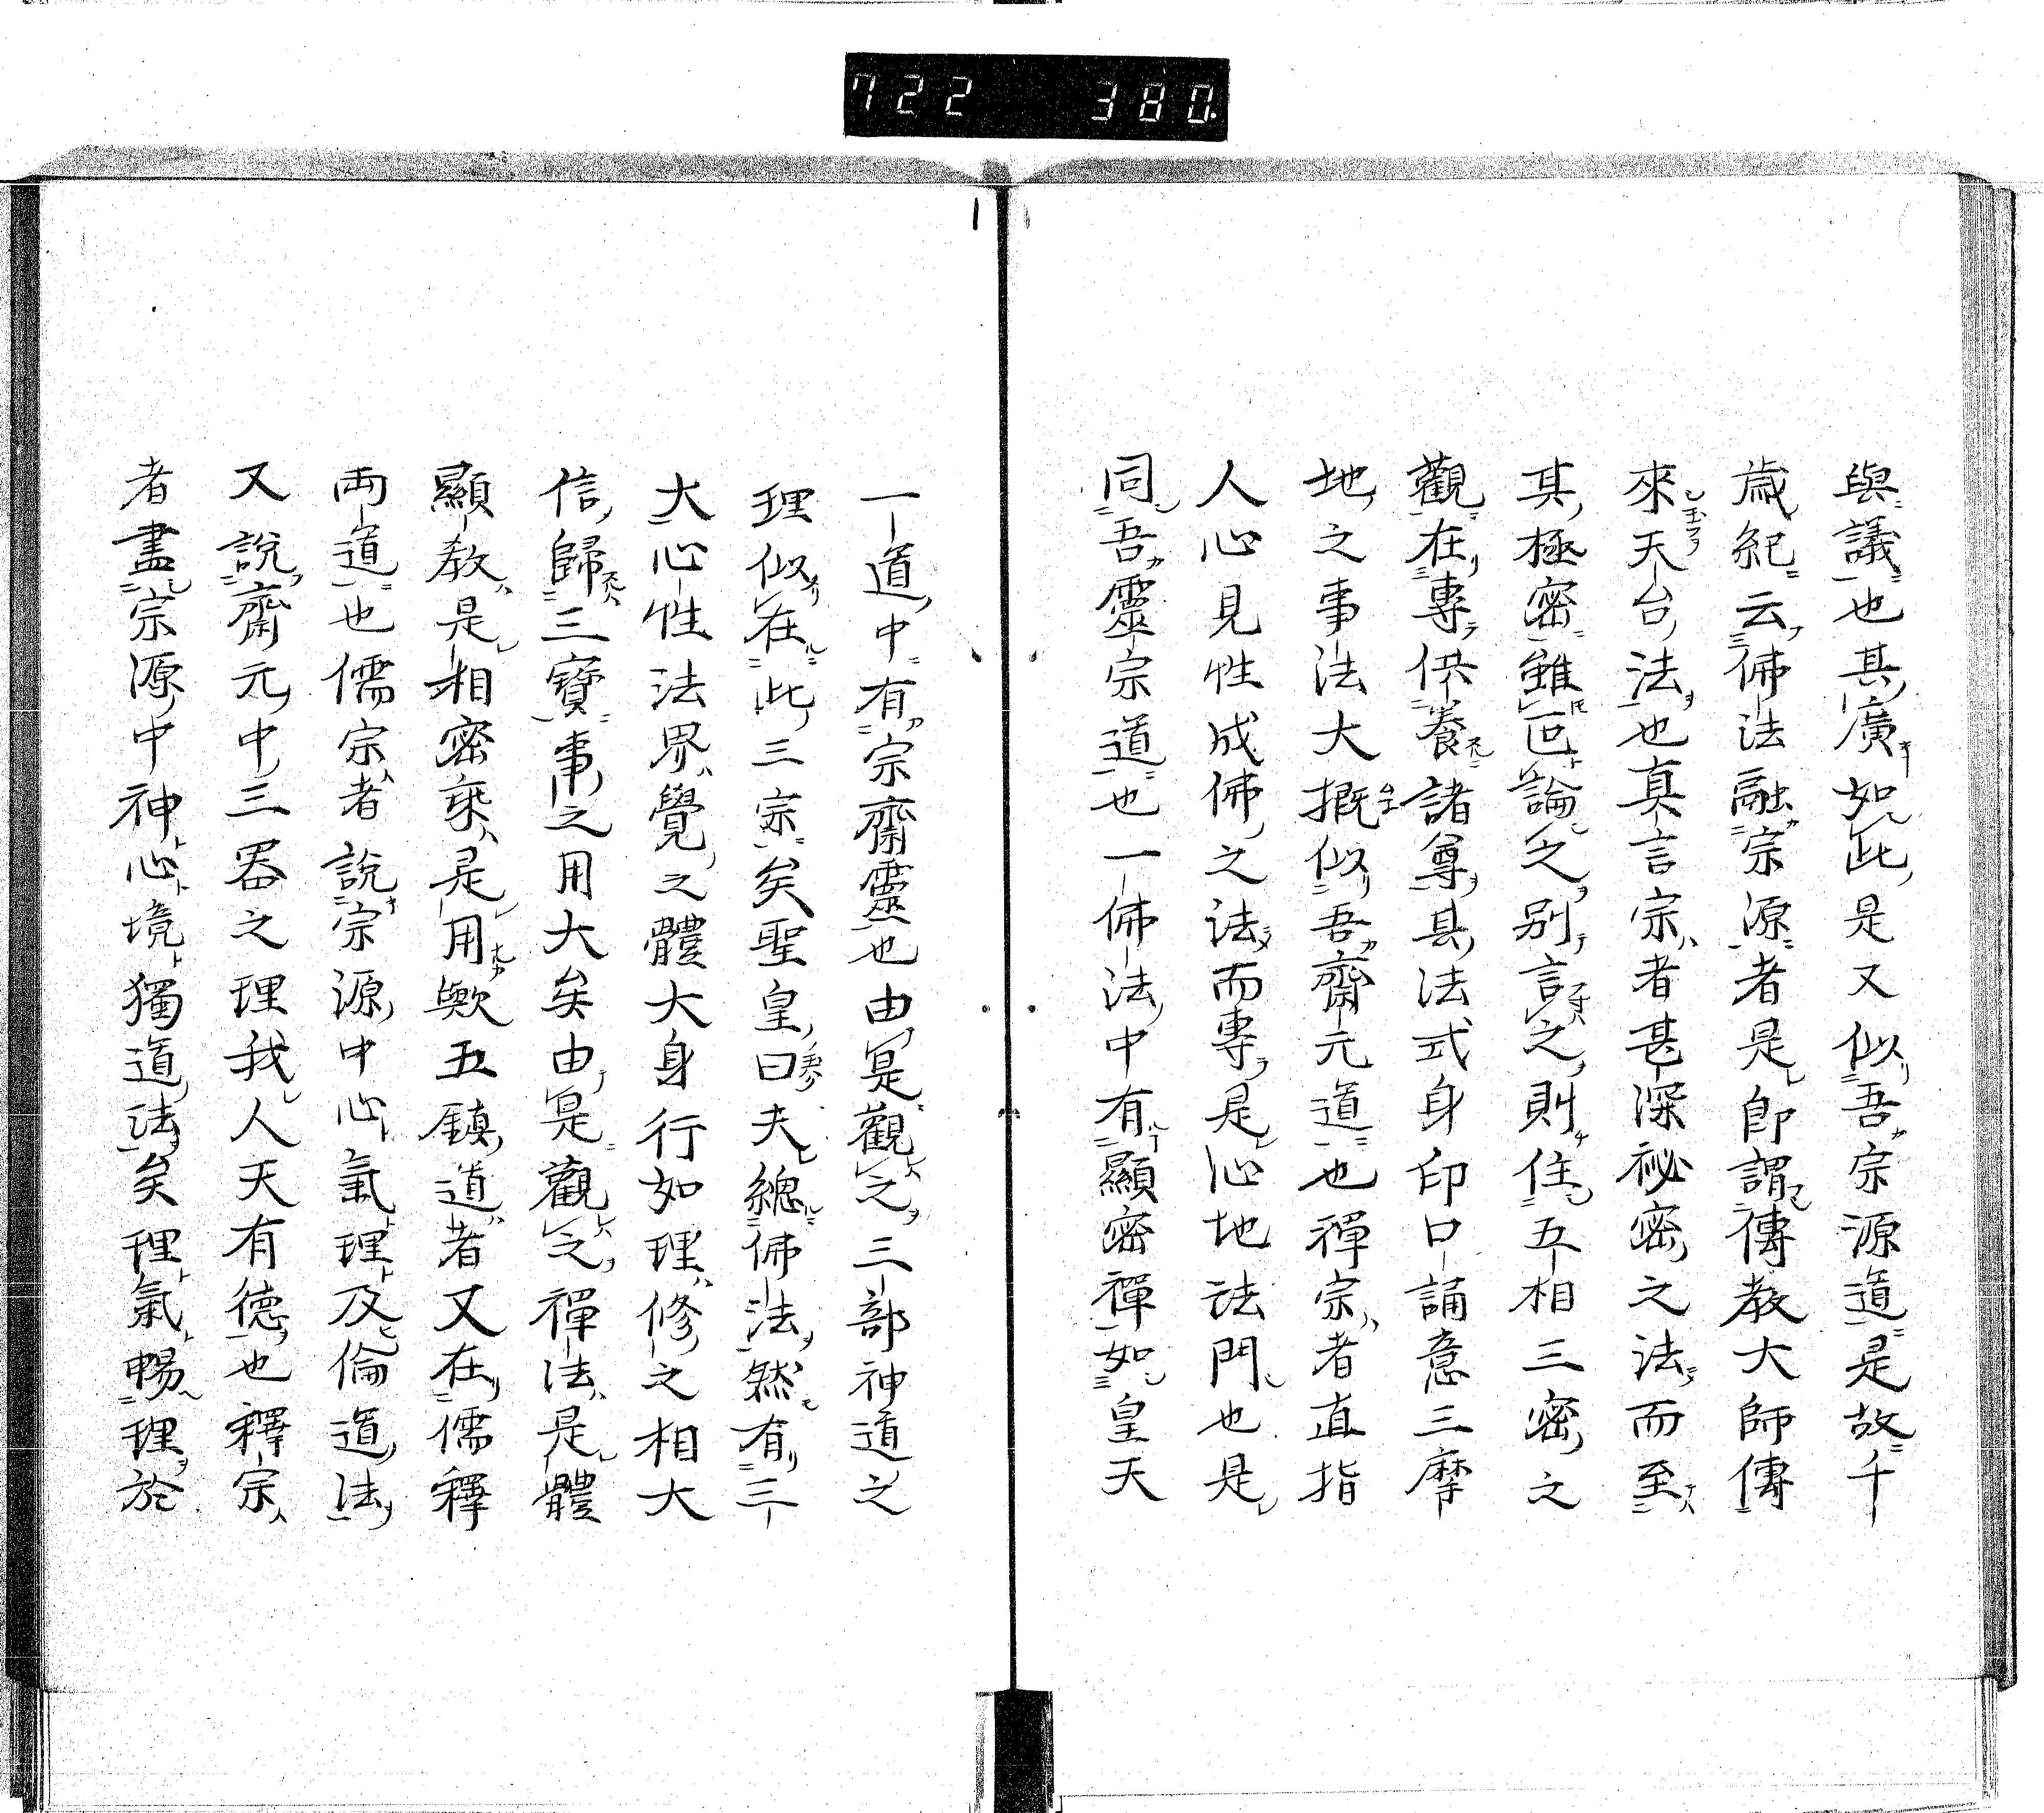 722 380.
與議也其廣如此是又似吾宗源道是故千
歳紀云佛法融宗源者是即謂傳教大師傳
來天台法也真言宗者甚深祕密之法而至
其極密雖叵論之別言之則住五相三密之
觀在專供養諸尊具法式身印口誦意三摩
地之事法大概似吾齋元道也禪宗者直指
人心見性成佛之法而專是心地法門也是
同吾靈宗道也一佛法中有顯密禪如皇天
一道中有宗齋靈也由是觀之三部神道之
理似在此三宗矣聖皇曰夫總佛法然有三
大心性法界覺之體大身行如理修之相大
信歸三寶事之用大矣由是觀之禪法是體
顯教是相密乘是用歟五鎮道者又在儒釋
両道也儒宗者說宗源中心氣理及倫道法
又說齋元中三器之理我人天有德也釋宗
者盡宗源中神心境獨道法矣理氣暢理於